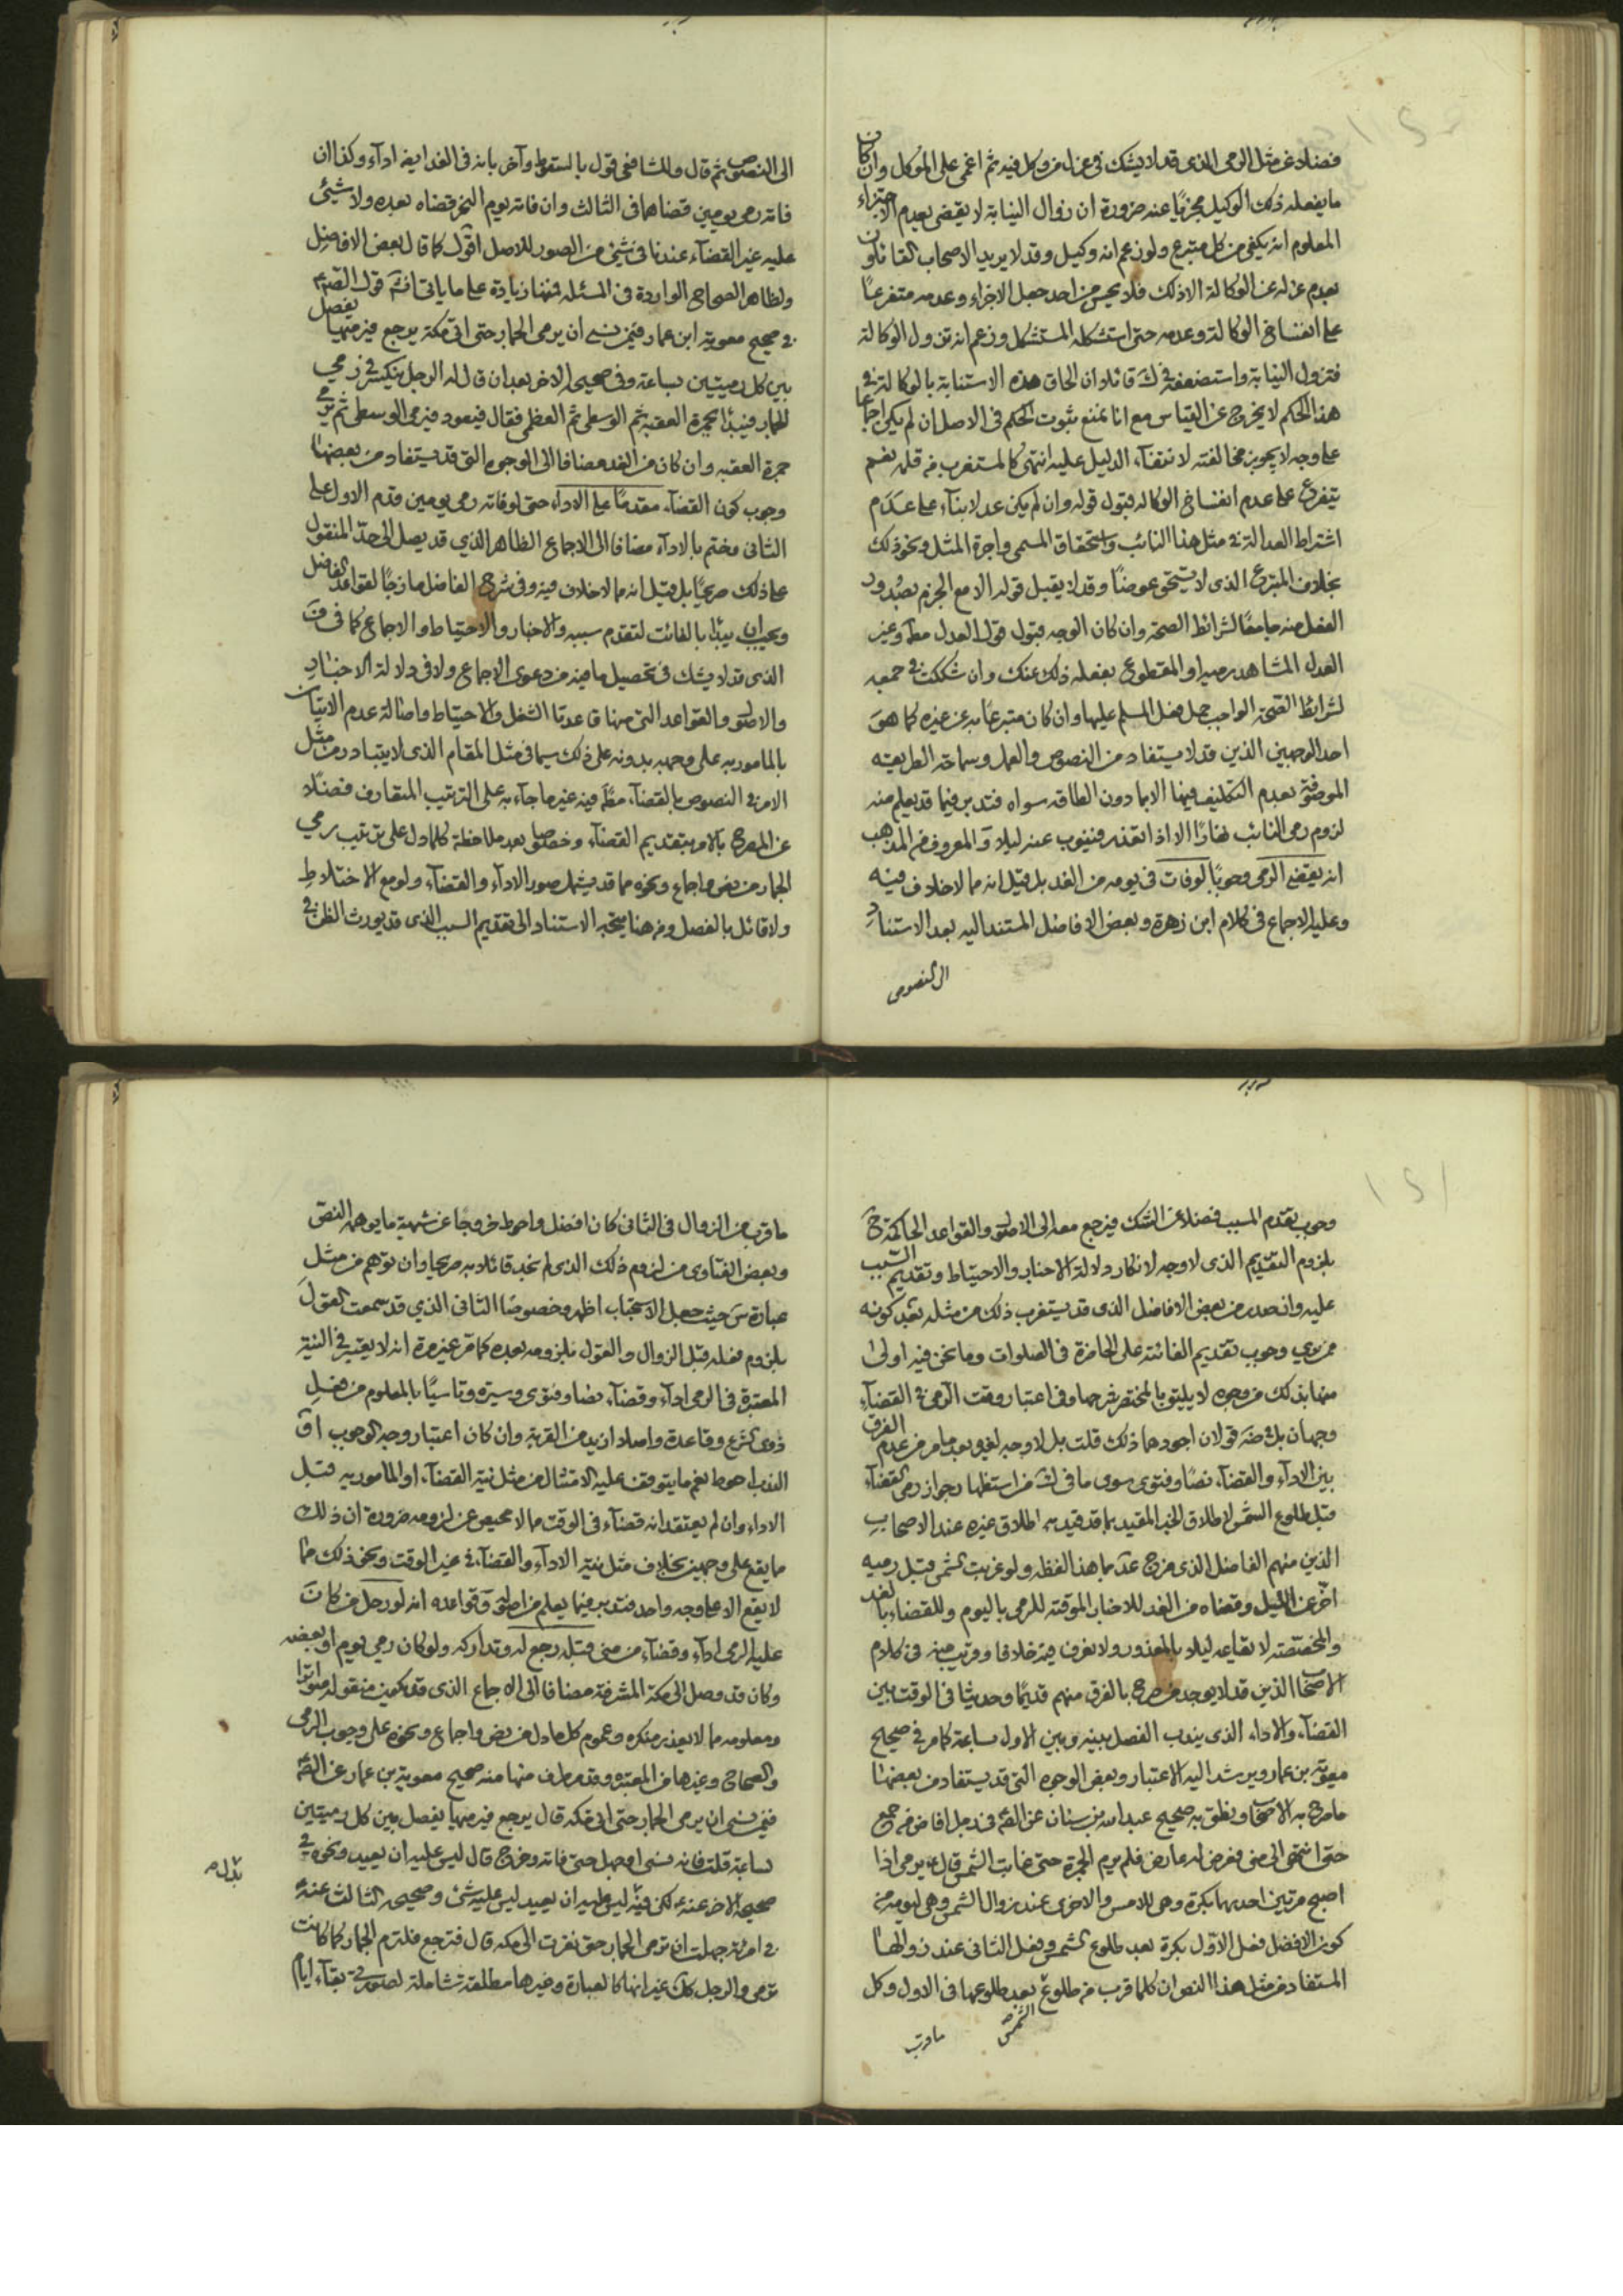 فضلا عن مثل الرمى الذى قد لا يشك فى عزل من وكل فيه ثم اغمى على الموكل وان كان
ما يفعله ذلك الوكيل مجزيا عنه ضرورة ان زوال النيابة لا يقضى بعدم الاجتزاء
المعلوم انه يكفى من كل متبرع ولو زعم انه وكيل وقد لا يريد الاصحاب القائلون
بعدم عزله عن الوكالة الا ذلك فلا يحسن من احد جعل الاجزاء وعدمه متفرعا
على انفساخ الوكالة وعدمه حتى استشكله المستشكل وزعم انه تزول الوكالة
فتزول النيابة واستضعفه فى ك قائلا ان الحاق هذه الاستنابة بالوكالة فى
هذا الحكم لا يخرج عن القياس مع انا نمنع ثبوت الحكم فى الاصل ان لم يكن اجماعا
على وجه لا يجوز مخالفته لانتفاء الدليل عليه انتهى كالمستغرب من قله نعم
يتفرع على عدم انفساخ الوكالة قبول قوله وان لم يكن عدلا بناء على عدم
اشتراط العدالة فى مثل هذا النائب واستحقاق المسمى واجرة المثل ونحو ذلك
بخلاف المتبرع الذى لا يستحق عوضا وقد لا يقبل قوله الا مع الجزم بصدور
الفعل منه جامعا لشرائط الصحة وان كان الوجه قبول قول العدل مطلقا وغير
العدل المشاهد رميه او المقطوع بفعله ذلك عنك وان شككت فى جمعه
لشرائط الصحة الواجب حمل فعل المسلم عليها وان كان متبرعا به عن غيره كما هو
احد الوجهين الذين قد لا يستفاد من النصوص والعمل وسماحة الطريقة
الموصوفة بعدم التكليف فيها الا بما دون الطاقه سواه فتدبر فيما قد يعلم منه
لزوم رمى النائب نهارا الا اذا تعذر فينوب عنه ليلا والمعروف من المذهب
انه يقضى الرمى وجوبا لو فات فى يومه من الغد بل قيل انه مما لا خلاف فيه
وعليه الاجماع فى كلام ابن زهرة وبعض الافاضل المستند اليه بعد الاستناد
الى النصوص
الى النصوص ثم قال وللشافعى قول بالسقوط وآخر بانه فى الغد ايضا اداء وكذا ان
فاته رمى يومين قضاهما فى الثالث وان فاته يوم النحر قضاه بعده ولا شيئ
عليه غير القضاء عندنا فى شيئ من الصور للاصل اقول كما قال بعض الافاضل
ولظاهر الصحاح الواردة فى المسئلة فمنها زيادة على ما ياتى قول الصم
فى صحيح معوية ابن عمار فيمن نسى ان يرمى الجمار حتى اتى مكة يرجع فيرميها يفصل
بين كل رميتين بساعة وفى صحيحه الاخر بعد ان قال له الرجل ينكس فى رمى
الجمار فيبدا بجمرة العقبه ثم الوسطى ثم العظمى فقال فيعود فيرمى الوسطى ثم يرمى
جمرة العقبه وان كان من الغد مضافا الى الوجوه التى قد يستفاد من بعضها
وجوب كون القضاء مقدما على الاداء حتى لو فاته رمى يومين قدم الاول على
الثانى وختم بالاداء مضافا الى الاجماع الظاهر الذى قد يصل الى حد المنقول
على ذلك صريحا بل قيل انه مما لا خلاف فيه وفى شرح الفاضل مازجا لقواعد الفاضل
ويجب ان يبدا بالفائت لتقدم سببه والاخبار والاحتياط والاجماع كما فى ف
الذى قد لا يشك فى تحصيل ما فيه من دعوى الاجماع ولا فى دلالة الاخبار
والاصول والقواعد التى منها قاعدتا الشغل والاحتياط واصالة عدم الاتيان
بالمامور به على وجهه بدونه على ذلك سيما فى مثل المقام الذى لا يتبادر من مثل
الامر فى النصوص بالقضاء مطلقا فيه غير ما جآء به على الترتيب المتعارف فضلا
عن المصرح بالامر بتقديم القضاء وخصوصا بعد ملاحظة كلما دل على ترتيب رمى
الجمار من نص واجماع ونحوه مما قد يشمل صور الاداء والقضاء ولو مع الاختلاط
ولا قائل بالفصل ومن هنا يتجه الاستناد الى تقديم السبب الذى قد يورث الظن فى
وجوب تقدم المسبب فضلا عن الشك فيرجع معه الى الاصول والقواعد الحاكمة ح
بلزوم التقديم الذى لا وجه لانكار دلالة الاخبار والاحتياط وتقديم السبب
عليه وان صدر من بعض الافاضل الذى قد يستغرب ذلك من مثله بعد كونه
ممن يرى وجوب تقديم الفائتة على الحاضرة فى الصلوات وما نحن فيه اولى
منها بذلك من وجوه لا يليق بالمختصر شرحها وفى اعتبار وقت الرمى فى القضاء
وجهان بل فى ضه قولان اجودهما ذلك قلت بل لا وجه لغيره بعد ما مر من عدم الفرق
بين الاداء والقضاء نصا وفتوى سوى ما فى لك من استظهار جواز رمى القضاء
قبل طلوع الشمس لاطلاق الخبر المقيد بما قد قيد به اطلاق غيره عند الاصحاب
الذين منهم الفاضل الذى صرح عد بما هذا لفظه ولو غربت الشمس قبل رميه
اخر عن الليل وقضاه من الغد للاخبار الموقتة للرمى باليوم وللقضاء بالغد
والمختصة لايقاعه ليلا بالمعذور ولا نعرف فيه خلافا وقريب منه فى كلام
الاصحاب الذين قد لا يوجد من صرح بالفرق منهم قديما وحديثا فى الوقت بين
القضاء والاداء الذى يندب الفصل بينه وبين الاول بساعة كما مر فى صحيح
معوية بن عمار ويرشد اليه الاعتبار وبعض الوجوه التى قد يستفاد من بعضها
ما صرح به الاصحاب ونطق به صحيح عبد الله بن سنان عن الصم فى رجل افاض من جمع
حتى انتهى الى منى فعرض له عارض فلم يرم الجمرة حتى غابت الشمس قال يرمى اذا
اصبح مرتين احديهما بكرة وهى للامس والاخرى عند زوال الشمس وهى ليومه من
كون الافضل فعل الاول بكرة بعد طلوع الشمس وفعل الثانى عند زوالها
المستفاد من مثل هذا النص ان كلما قرب من طلوع الشمس بعد طلوعها فى الاول وكل
ما قرب
ما قرب من الزوال فى الثانى كان افضل واحوط خروجا عن شبهة ما يوهمه النص
وبعض الفتاوى من لزوم ذلك الذى لم نجد قائلا به صريحا وان توهم من مثل
عبارة س حيث جعل الاستحباب اظهر وخصوصا الثانى الذى قد سمعت القول
بلزوم فعله قبل الزوال والقول بلزومه بعده كما مر غير مرة انه لا يعتبر فى النية
المعتبرة فى الرمى اداء وقضاء نصا وفتوى وسيرة وتاسيا بالمعلوم من فعل
ذوى الشرع وقاعدة واصلا ازيد من القربة وان كان اعتبار وجه الوجوب او
الندب احوط نعم ما يتوقف عليه الامتثال من مثل نية القضاء او المامور به قبل
الاداء وان لم يعتقد انه قضاء فى الوقت مما لا محيص عن لزومه ضرورة ان ذلك
ما يقع على وجهين بخلاف مثل نية الاداء والقضاء فى غير الوقت ونحو ذلك مما
لا يقع الا على وجه واحد فتدبر فيما يعلم من اصوله وقواعده انه لو رحل من كان
عليه الرمى اداء وقضاء من منى قبله رجع له وتداركه ولو كان رمى يوم او بعضه
وكان قد وصل الى مكة المشرفة مضافا الى الاجماع الذى قد يكون منقوله متواترا
ومعلومه مما لا يعذر منكره وعموم كل ما دل من نص واجماع ونحوه على وجوب الرمى
والصحاح وغيرها من المعتبرة وقد مر طرف منها منه صحيح معوية بن عمار عن الصم
فيمن نسى ان يرمى الجمار حتى اتى مكه قال يرجع فيرميها يفصل بين كل رميتين
بساعة قلت فاته نسى او جهل حتى فاته وخرج قال ليس عليه ان يعيد ونحوه فى
صحيحه الاخر عنه لكن فيه ليس عليه ان يعيد ليس عليه شئ وصحيحه الثالث عنه
فى امرئة جهلت ان ترمى الجمار حتى نفرت الى مكه قال فترجع فلترم الجمار كما كانت
ترمى والرجل كك غير انها كالعبارة وغيرها مطلقة شاملة لصورتى بقاء ايام